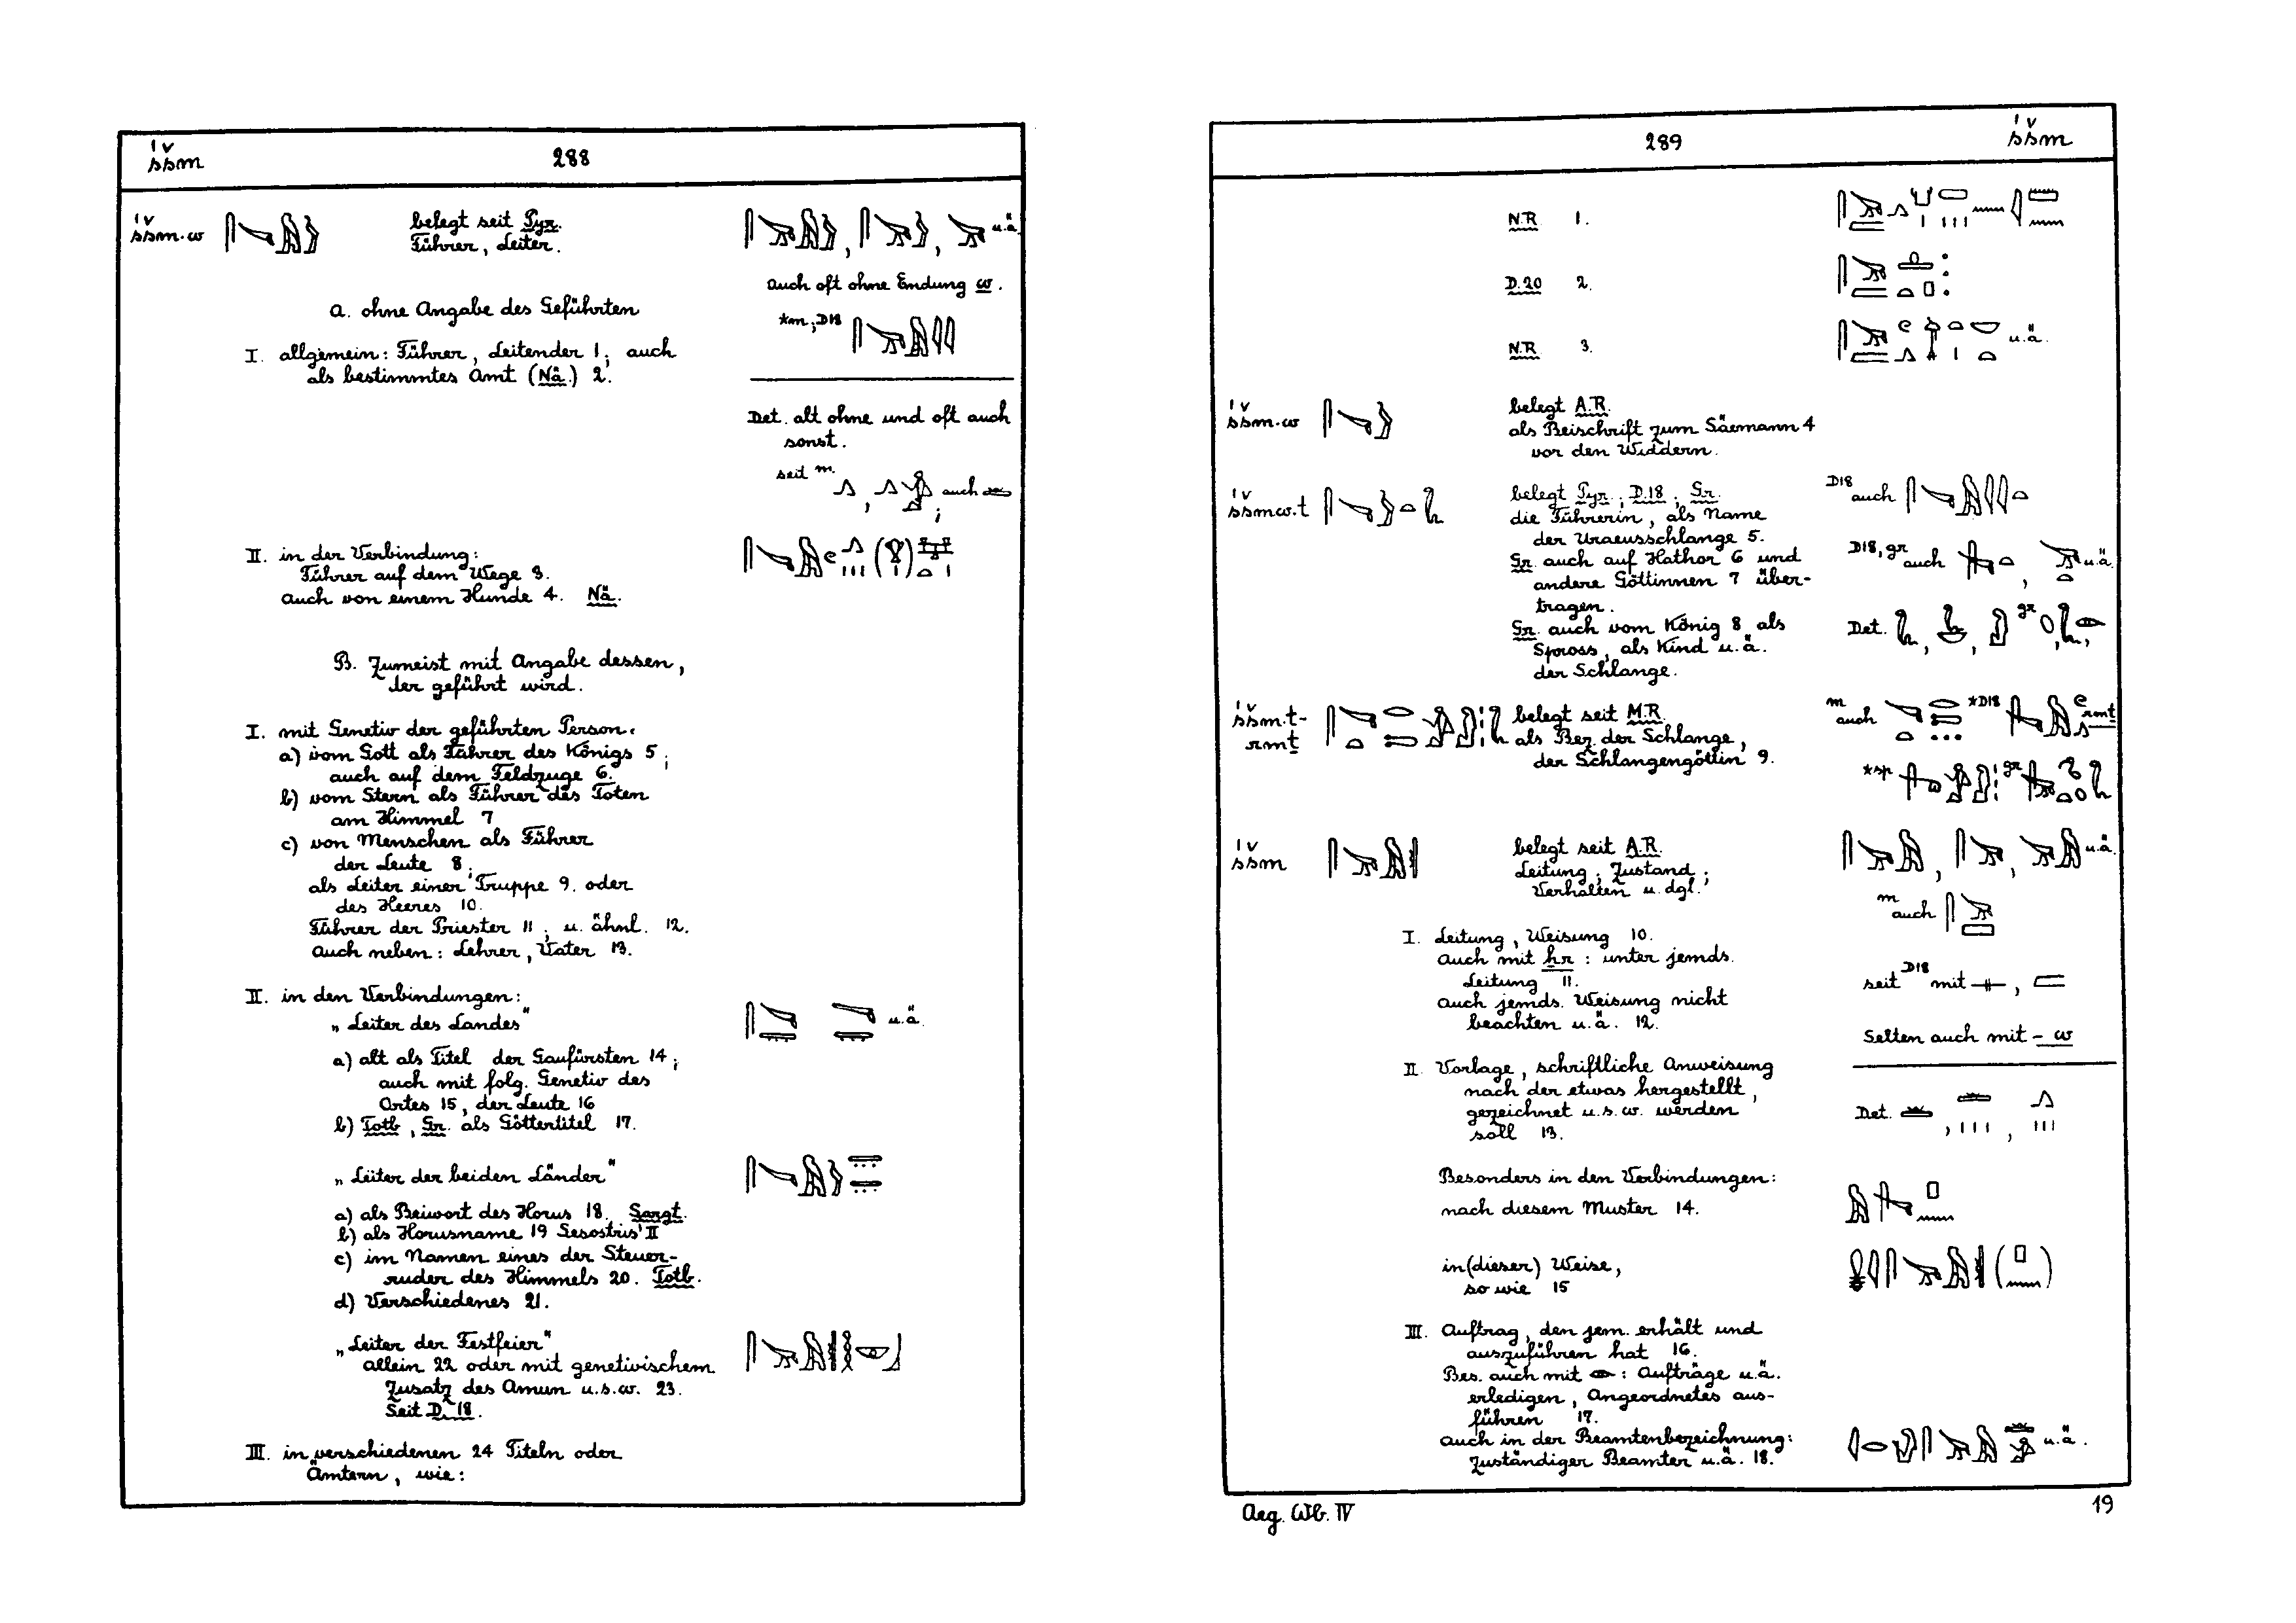 śšm
288
śšm·w
belegt seit Pyr.
Führer, Leiter.
u.ä.
auch oft ohne Endung w.
*m; D18
a. ohne Angabe des Geführten
I. allgemein: Führer, Leitender 1; auch
als bestimmtes Amt (Nä.) 2.
Det. alt ohne und oft auch
sonst.
seit m.
auch
II. in der Verbindung:
Führer auf dem Wege 3.
auch von einem Hunde 4. Nä.
B. Zumeist mit Angabe dessen,
der geführt wird.
I. mit Genetiv der geführten Person.
a) vom Gott als Führer des Königs 5;
auch auf dem Feldzuge 6.
b) vom Stern als Führer des Toten
am Himmel 7
c) von Menschen als Führer
der Leute 8;
als Leiter einer Truppe 9. oder
des Heeres 10.
Führer der Priester 11; u. ähnl. 12.
Auch neben: Lehrer, Vater 13.
II. in den Verbindungen:
„Leiter des Landes"
u.ä.
a) alt als Titel der Gaufürsten 14;
auch mit folg. Genetiv des
Ortes 15, der Leute 16
b) Totb., Gr. als Göttertitel 17.
„Leiter der beiden Länder"
a) als Beiwort des Horus 18. Sargt.
b) als Horusname 19 Sesostris' II
c) im Namen eines der Steuer-
ruder des Himmels 20. Totb.
d) Verschiedenes 21.
„Leiter der Festfeier"
allein 22 oder mit genetivischem
Zusatz des Amun u.s.w. 23.
Seit D. 18.
III. in verschiedenen 24 Titeln oder
Ämtern, wie:
289
śšm
N.R. 1.
D.20 2.
N.R. 3.
u.ä.
śšm·w
belegt A.R.
als Beischrift zum Säemann 4
vor den Widdern.
śšmw.t
belegt Pyr.; D.18; Gr.
die Führerin, als Name
der Uraeusschlange 5.
Gr. auch auf Hathor 6 und
andere Göttinnen 7 über-
tragen.
Gr. auch vom König 8 als
Spross, als Kind u.ä.
der Schlange.
D18 auch
D18, gr auch
u.ä.
Det.
gr
śšm.t-
rmṯ
belegt seit M.R.
als Bez. der Schlange,
der Schlangengöttin 9.
m auch
*D18
rmṯ
*sp
gr
śšm
belegt seit A.R.
Leitung; Zustand;
Verhalten u. dgl.
u.ä.
m auch
I. Leitung, Weisung 10.
Auch mit ẖr : unter jemds.
Leitung 11.
auch jemds. Weisung nicht
beachten u.ä. 12.
seit D18 mit
Selten auch mit - w
II. Vorlage, schriftliche Anweisung
nach der etwas hergestellt,
gezeichnet u.s.w. werden
soll 13.
Det.
Besonders in den Verbindungen:
nach diesem Muster 14.
in (dieser) Weise,
so wie 15
III. Auftrag, den jem. erhält und
auszuführen hat 16.
Bes. auch mit : Aufträge u.ä.
erledigen, Angeordnetes aus-
führen 17.
auch in der Beamtenbezeichnung:
zuständiger Beamter u.ä. 18.
u.ä.
Aeg. Wb. IV
19